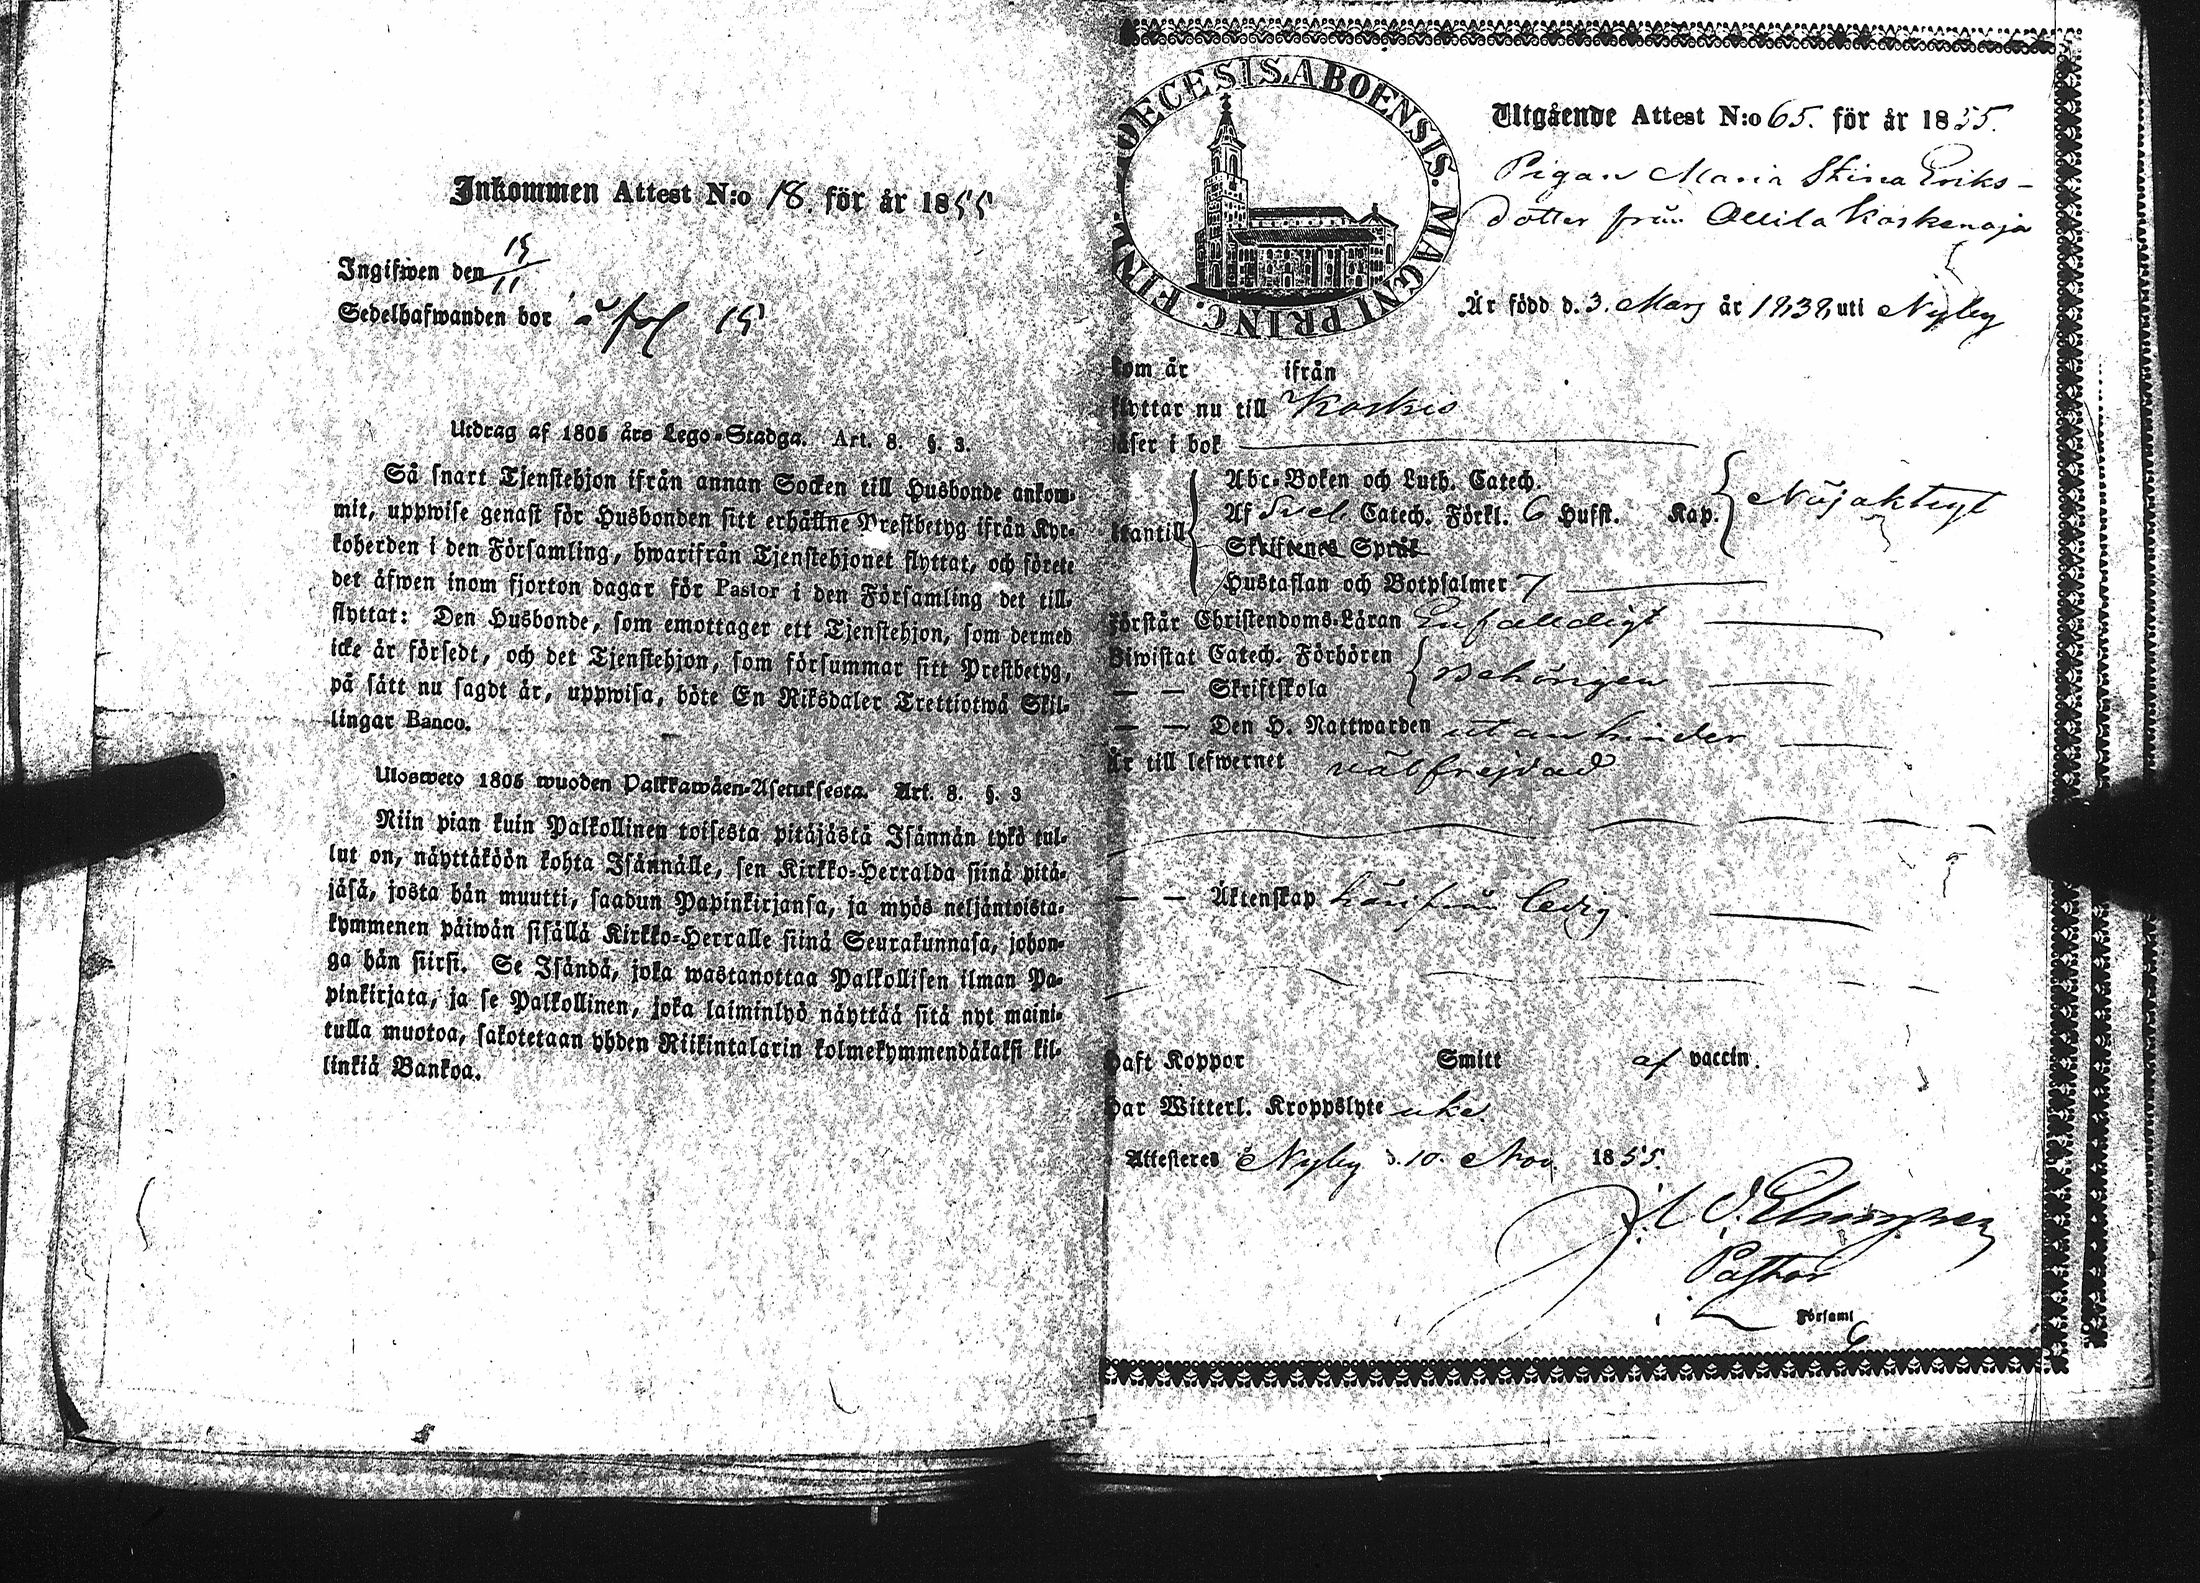 Inkommen Attest N:o 18. för år 1855
Ingifwen den 15/11
Sedelhafwanden bor å fol 15
Utdrag af 1805 års Lego-Stadga. Art. 8. §. 3.
Så snart Tjenstehjon ifrån annan Socken till Husbonde ankom-
mit, uppwise genast för Husbonden sitt erhållne Prestbetyg ifrån Kyr-
koherden i den Församling, hwarifrån Tjenstehjonet flyttat, och förete
det äfwen inom fjorton dagar för Pastor i den Församling det till-
flyttat: Den Husbonde, som emottager ett Tjenstehjon, som dermed
icke är försedt, och det Tjenstehjon, som försummar sitt Prestbetyg,
på sätt nu sagdt är, uppwisa, böte En Riksdaler Trettiotwå Skil-
lingar Banco.
Ulosweto 1805 wuoden Palkkawäen-Asetuksesta. Art. 8. §. 3
Niin pian kuin Palkollinen toisesta pitäjästä Isännän tykö tul-
lut on, näyttäköön kohta Isännälle, sen Kirkko-Herralda siinä pitä-
jäsä, josta hän muutti, saadun Papinkirjansa, ja myös neljäntoista-
kymmenen päiwän sisällä Kirkko-Herralle siinä Seurakunnasa, johon-
ga hän siirsi. Se Isändä, joka wastanottaa Palkollisen ilman Pa-
pinkirjata, ja se Palkollinen, joka laiminlyö näyttää sitä nyt maini-
tulla muotoa, sakotetaan yhden Riikintalarin kolmekymmendäkaksi kil-
linkiä Bankoa.
DECESIS ABOENSIS. MAGNI PRINC. FINL.
Utgående Attest N:o 65. för år 1855.
Pigan Maria Stina Eriks-
dotter från Ollila Koskenoja
Är född d. 3. Mars år 1838, uti Nyby
kom år ifrån
flyttar nu till Koskis
läser i bok
Abc-Boken och Luth. Catech.
utantill Af Sveb. Catech. Förkl. 6 Hufst. Kap. Nöjaktigt
Skriftenes Språk
Hustaflan och Botpsalmer 7
förstår Christendoms-Läran Enfaldigt
Biwistat Catech. Förhören Behörigen
— — Skriftskola
— — Den H. Nattwarden utan hinder
Är till lefwernet välfrejdad
— — Äktenskap härifrån ledig.
Haft Koppor Smitt af vaccin.
Har Witterl. Kroppslyte icke
Attesteres Nyby d. 10. Nov. 1855.
Pastor
Församl
6